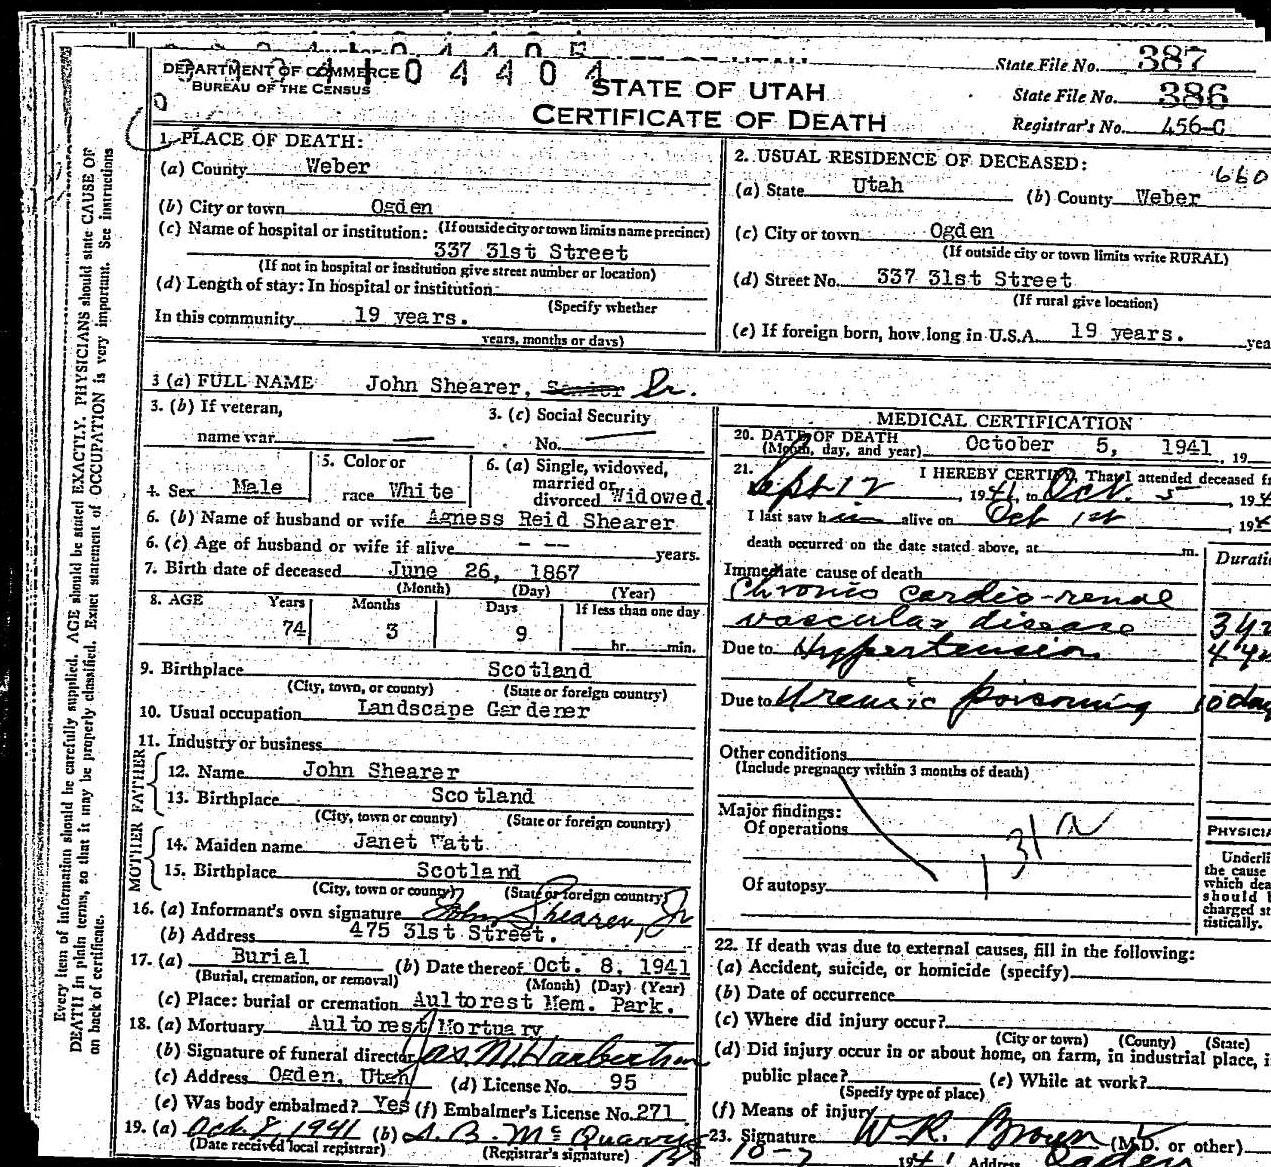 State File No. 387
DEPARTMENT OF COMMERCE 04404
BUREAU OF THE CENSUS
STATE OF UTAH
CERTIFICATE OF DEATH
State File No. 386
Registrar's No. 456-C
1. PLACE OF DEATH:
(a) County Weber
(b) City or town Ogden
(c) Name of hospital or institution: (If outside city or town limits name precinct)
337 31st Street
(If not in hospital or institution give street number or location)
(d) Length of stay: In hospital or institution
(Specify whether
In this community 19 years.
years, months or days)
2. USUAL RESIDENCE OF DECEASED:
660
(a) State Utah (b) County Weber
(c) City or town Ogden
(If outside city or town limits write RURAL)
(d) Street No. 337 31st Street
(If rural give location)
(e) If foreign born, how long in U.S.A. 19 years. yea
3 (a) FULL NAME John Shearer, Senior Sr.
3. (b) If veteran, name war
3. (c) Social Security No.
4. Sex Male
5. Color or race White
6. (a) Single, widowed, married or divorced Widowed.
6. (b) Name of husband or wife Agness Reid Shearer
6. (c) Age of husband or wife if alive - -- years.
7. Birth date of deceased June 26, 1867
(Month) (Day) (Year)
8. AGE Years Months Days If less than one day
74 3 9 hr. min.
9. Birthplace Scotland
(City, town, or county) (State or foreign country)
10. Usual occupation Landscape Garderer
11. Industry or business
FATHER
12. Name John Shearer
13. Birthplace Scotland
(City, town or county) (State or foreign country)
MOTHER
14. Maiden name Janet Watt
15. Birthplace Scotland
(City, town or county) (State or foreign country)
16. (a) Informant's own signature John Shearer, Jr
(b) Address 475 31st Street.
17. (a) Burial (b) Date thereof Oct. 8, 1941
(Burial, cremation, or removal) (Month) (Day) (Year)
(c) Place: burial or cremation Aultorest Mem. Park.
18. (a) Mortuary Aultorest Mortuary
(b) Signature of funeral director Jas. M. Harbertson
(c) Address Ogden, Utah (d) License No. 95
(e) Was body embalmed? Yes (f) Embalmer's License No. 271
19. (a) Oct. 8, 1941 (b)
(Date received local registrar) (Registrar's signature)
MEDICAL CERTIFICATION
20. DATE OF DEATH
(Month, day, and year) October 5, 1941, 19
21. I HEREBY CERTIFY, That I attended deceased fr
Sept 12, 1941, to Oct. 5, 194
I last saw him alive on Oct 1st, 194
death occurred on the date stated above, at m.
Duratio
Immediate cause of death
Chronic cardio-renal
vascular disease 3 yr
Due to Hypertension 4 yr
Due to Uremic poisoning 10 day
Other conditions
(Include pregnancy within 3 months of death)
Major findings:
Of operations
131a
Of autopsy
PHYSICIA
Underli
the cause
which dea
should b
charged st
tistically.
22. If death was due to external causes, fill in the following:
(a) Accident, suicide, or homicide (specify)
(b) Date of occurrence
(c) Where did injury occur?
(City or town) (County) (State)
(d) Did injury occur in or about home, on farm, in industrial place, i
public place? (e) While at work?
(Specify type of place)
(f) Means of injury
23. Signature W. R. Brown (M.D. or other)
10-7 1941 Address Ogden
Every item of information should be carefully supplied. AGE should be stated EXACTLY. PHYSICIANS should state CAUSE OF
DEATH in plain terms, so that it may be properly classified. Exact statement of OCCUPATION is very important. See instructions
on back of certificate.